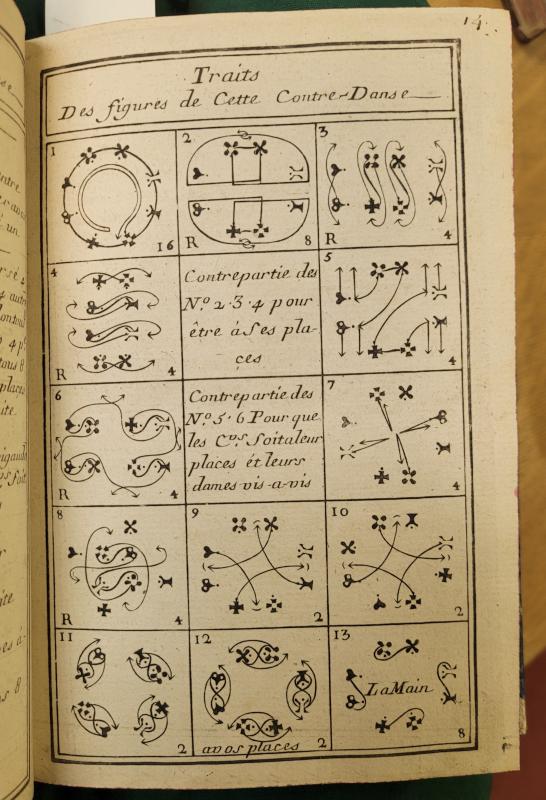 14.
Traits
Des figures de Cette Contre-Danse
1
16
2
R 8
3
R 4
4
R 4
Contrepartie des
N.º 2. 3. 4 pour
être à Ses pla-
ces
5
4
6
R 4
Contrepartie des
N.º 5. 6 Pour que
les C.ᵛˢ. Soit a leur
places ét leurs
dames vis-a-vis
7
4
8
R 4
9
2
10
2
11
2
12
avos places 2
13
La Main
8